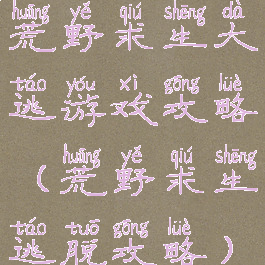 huāng yě qiú shēng dà
荒野求生大
táo yóu xì gōng lüè
逃游戏攻略
huāng yě qiú shēng
（荒野求生
táo tuō gōng lüè
逃脱攻略）